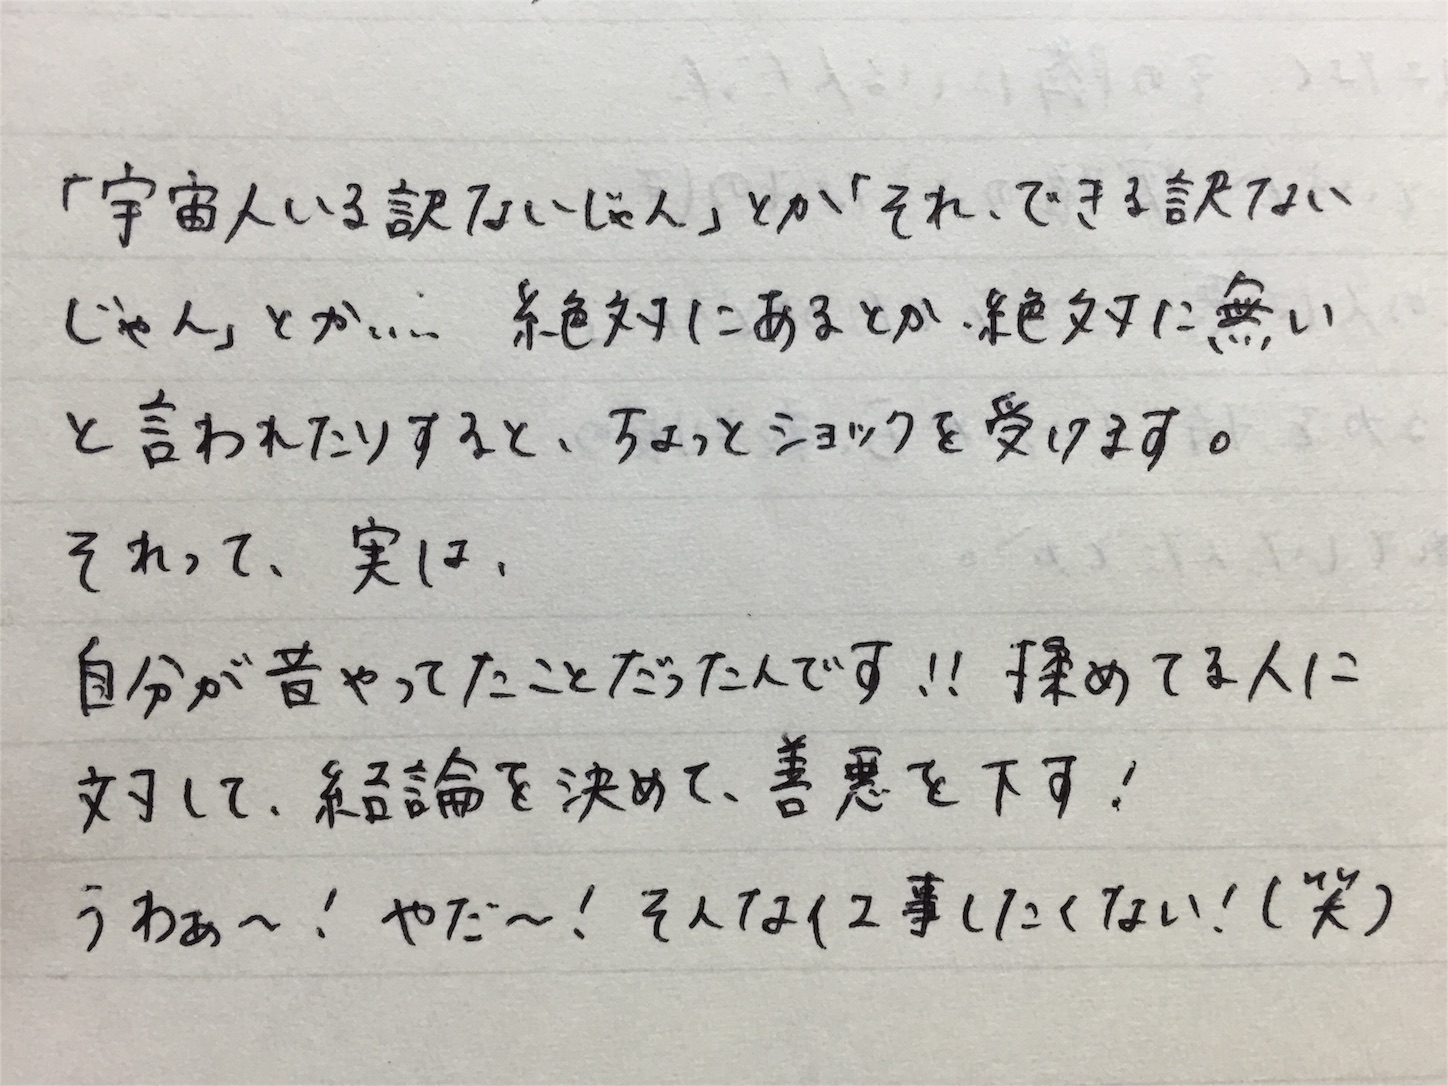 「宇宙人いる訳ないじゃん」とか「それ、できる訳ない
じゃん」とか….. 絶対にあるとか、絶対に無い
と言われたりすると、ちょっとショックを受けます。
それって、実は、
自分が昔やってたことだったんです!! 揉めてる人に
対して、結論を決めて、善悪を下す!
うわぁ〜! やだ〜! そんな仕事したくない!(笑)